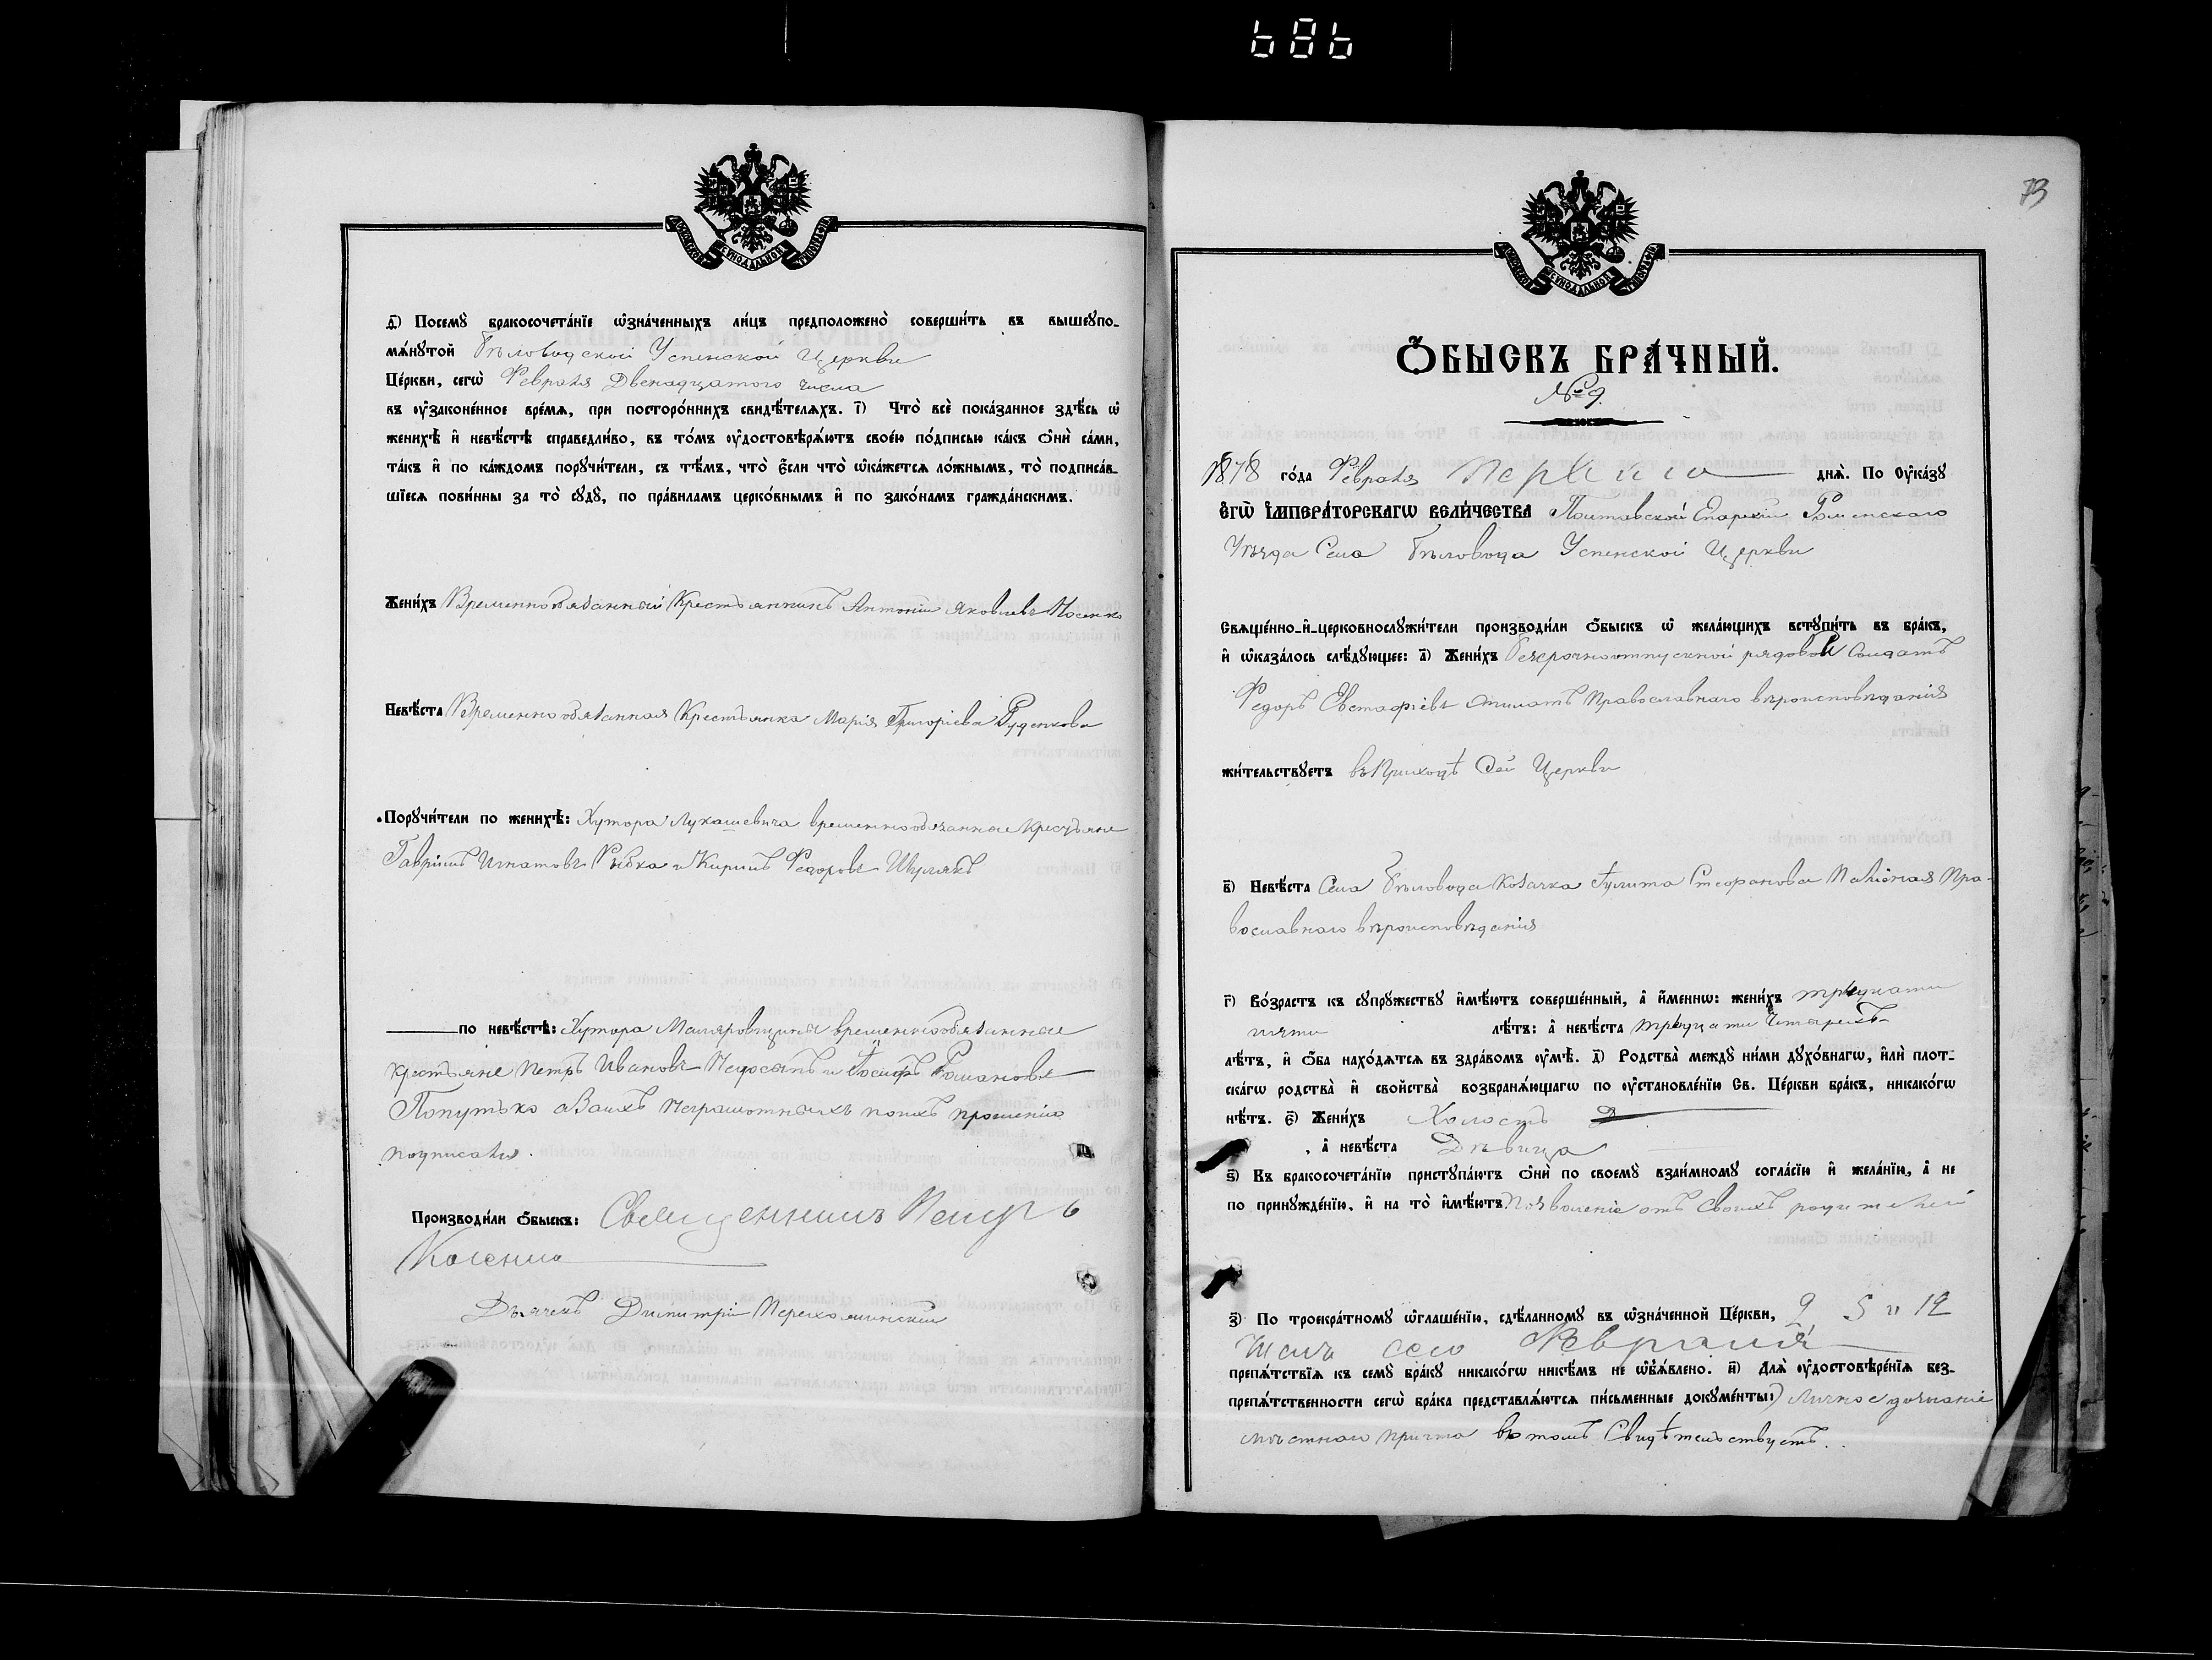 686
МОСКОВСКОЙ СѴНОДАЛЬНОЙ ТИПОГРАФІИ
д҃) Посемꙋ̀ бракосочета́нїе ѡ҆зна́ченныхъ ли́цъ предположено̀ соверши́ть въ вышеꙋпо-
мѧ́нꙋтой Бѣловодской Успенской Церкви
Це́ркви, сегѡ̀ Февраля Двенадцатого числа
въ ᲂу҆законе́нное вре́мѧ, при посторо́ннихъ свидѣ́телѧхъ. і҃) Что̀ всѐ пока́занное здѣ́сь ѡ҆
женихѣ̀ и҆ невѣ́стѣ справедли́во, въ то́мъ ᲂу҆достовѣрѧ́ютъ свое́ю по́дписью ка́къ ѻ҆нѝ са́ми,
та́къ и҆ по ка́ждомъ порꙋчи́тели, съ тѣ́мъ, что̀ є҆́сли что̀ ѡ҆ка́жетсѧ ло́жнымъ, то̀ подписа́в-
шїесѧ пови́нны за то̀ сꙋдꙋ̀, по пра́виламъ церко́внымъ и҆ по зако́намъ гражда́нскимъ.
Жени́хъ Временнообязанный Крестьянинъ Антоній Яковлевъ Носенко
Невѣ́ста Временнообязанная Крестьянка Марія Григоріева Руденкова
Порꙋчи́тели по женихѣ̀: Хутора Лукашевича временнообязанные Крестьяне
Гавріилъ Игнатовъ Рыбка и Кирилъ Федоровъ Шуликъ
по невѣ́стѣ: Хутора временнообязанные
крестьяне Петръ Ивановъ и Іосифъ Романовъ
Попутько а Заихъ Неграмотныхъ поихъ прошенію
подписался.
Производи́ли ѻ҆́быскъ: Священникъ Петръ
Дьячекъ Димитрій
73
МОСКОВСКОЙ СѴНОДАЛЬНОЙ ТИПОГРАФІИ
Ѻ҆́БЫСКЪ БРА́ЧНЫЙ.
№ 9.
1878 го́да Февраля Перваго днѧ̀. По ᲂу҆ка́зꙋ
Є҆гѡ̀ І҆мпера́торскагѡ Вели́чества Полтавской Епархіи Роменскаго
Уѣзда Села Бѣловода Успенской Церкви
Свѧще́нно-и҆-церковнослꙋжи́тели производи́ли ѻ҆́быскъ ѡ҆ жела́ющихъ встꙋпи́ть въ бра́къ,
и҆ ѡ҆каза́лось слѣ́дꙋющее: а҃) Жени́хъ безсрочноотпускной рядовой Солдатъ
Федоръ Евстафіевъ Православнаго вѣроисповѣданія
жи́тельствꙋетъ въ Приходѣ Сей Церкви
в҃) Невѣ́ста Села Бѣловода Козачка Іулита Стефанова Пра-
вославнаго вѣроисповѣданія
г҃) Во́зрастъ къ сꙋпрꙋ́жествꙋ и҆мѣ́ютъ соверше́нный, а҆ и҆́меннѡ: жени́хъ тридцати
пяти лѣ́тъ: а҆ невѣ́ста тридцати Четырехъ
лѣ́тъ, и҆ ѻ҆́ба нахо́дѧтсѧ въ здра́вомъ ᲂу҆мѣ̀. д҃) Родства̀ междꙋ̀ ни́ми дꙋхо́внагѡ, и҆лѝ плот-
ска́гѡ родства̀ и҆ сво́йства̀ возбранѧ́ющагѡ по ᲂу҆становле́нїю Св. Це́ркви бра́къ, никако́гѡ
нѣ́тъ. є҃) Жени́хъ Холостъ
, а҆ невѣ́ста Дѣвица
ѕ҃) Въ бракосочета́нїю пристꙋпа́ютъ ѻ҆нѝ по своемꙋ̀ взаи́мномꙋ согла́сїю и҆ жела́нїю, а҆ не
по принꙋжде́нїю, и҆ на то̀ и҆мѣ́ютъ Позволеніе отъ Своихъ родителей
з҃) По троекра́тномꙋ ѡ҆глаше́нїю, сдѣ́ланномꙋ въ ѡ҆зна́ченной Це́ркви, 2, 5 и 12
сего Февраля
препѧ́тствїѧ къ семꙋ̀ бра́кꙋ никако́гѡ никѣ́мъ не ѡ҆б̾ѧ́влено. и҃) Длѧ̀ ᲂу҆достовѣре́нїѧ без-
препѧ́тственности сегѡ̀ бра́ка представлѧ́ютсѧ пи́сьменные докꙋме́нты: Личное дознаніе
мѣстнаго причта въ томъ Свидѣтельствуетъ.